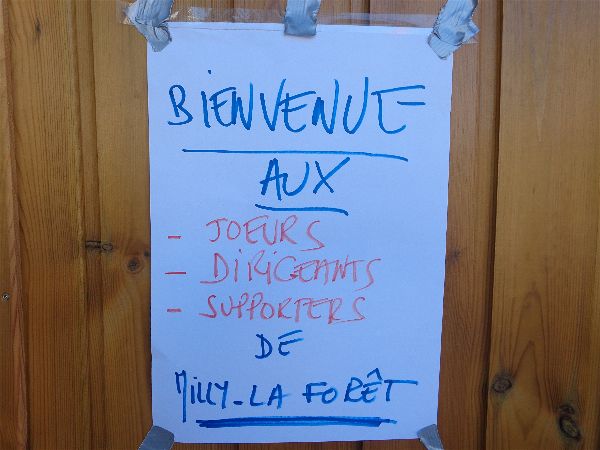 BIENVENUE
AUX
- JOEURS
- DIRIGEANTS
- SUPPORTERS
DE
MILLY-LA FORÊT